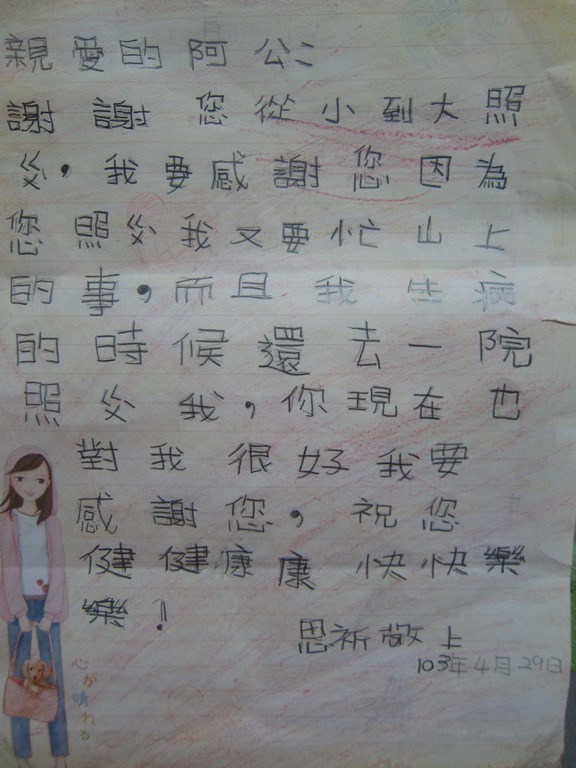 親愛的阿公:
謝謝您從小到大照
,我要感謝您因為
您照我又要忙山上
的事,而且我生病
的時候還去一院
照我,你現在也
對我很好我要
感謝您,祝您
健健康康快快樂
樂!
思祈敬上
103年4月29日
心が
晴れる